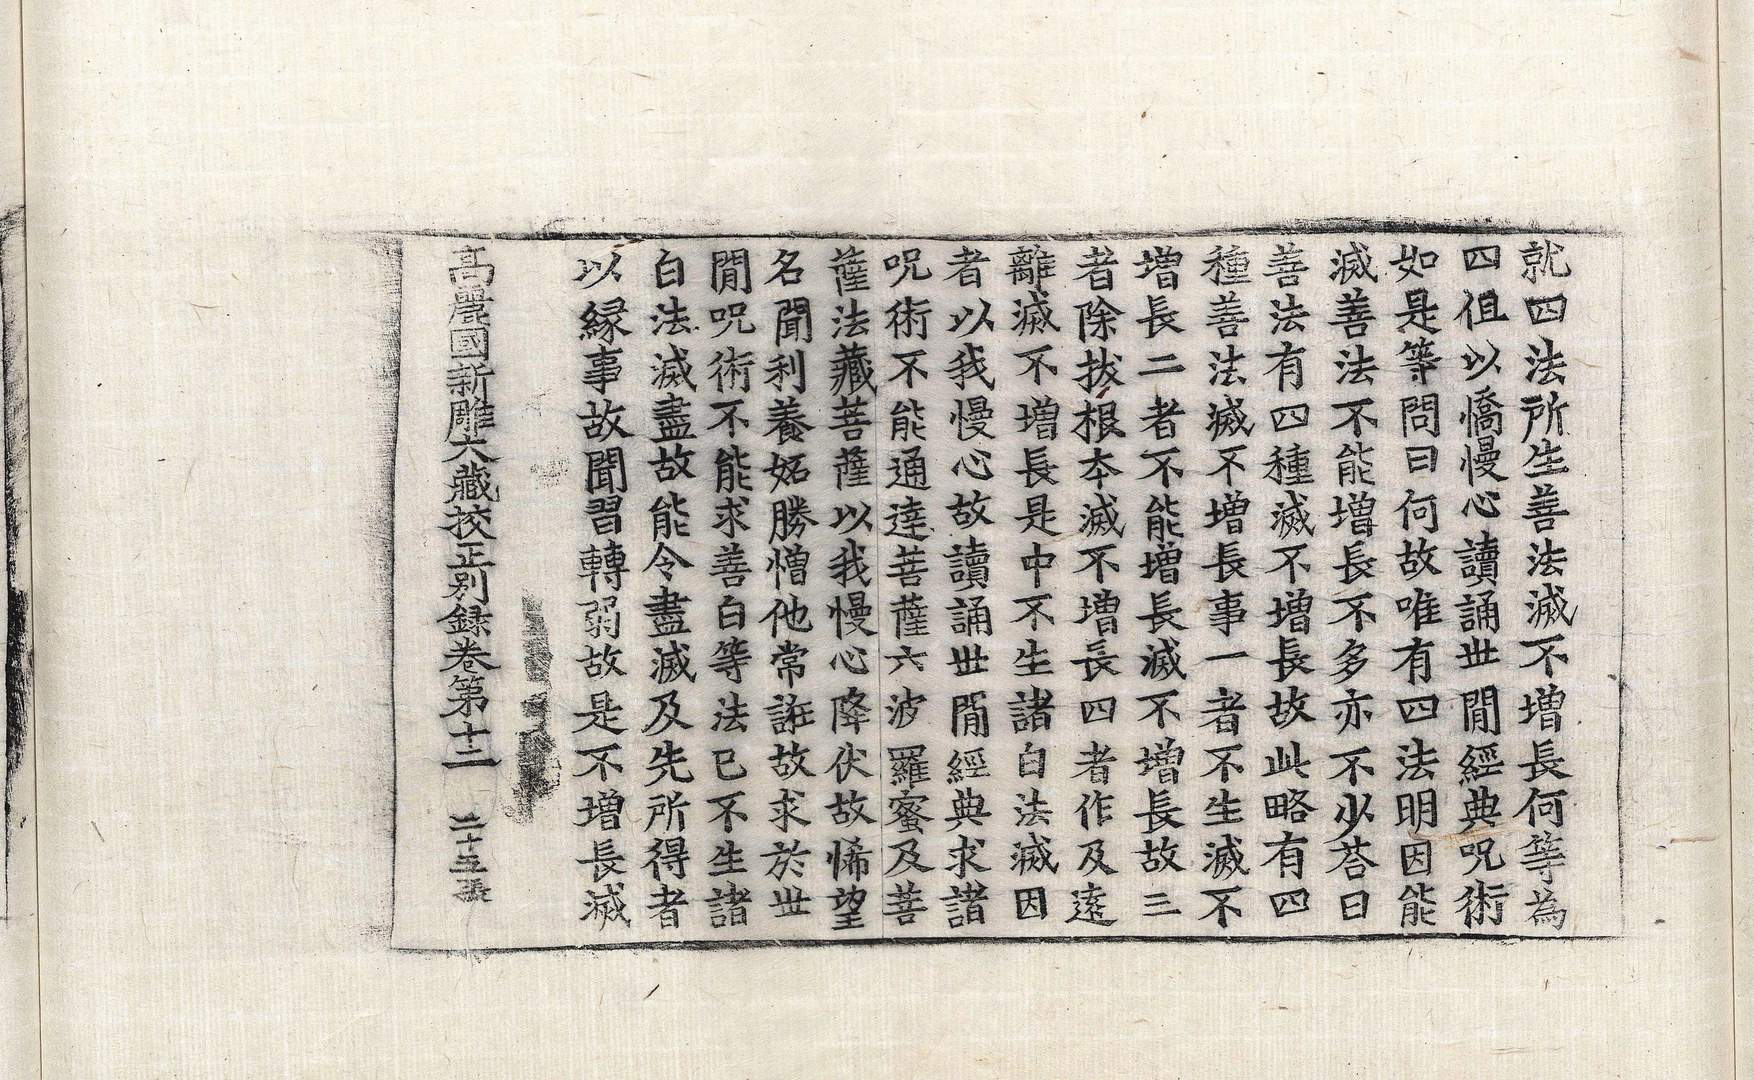 就四法所生善法滅不增長何等為
四但以憍慢心讀誦世閒經典呪術
如是等問曰何故唯有四法明因能
滅善法不能增長不多亦不少荅曰
善法有四種滅不增長故此略有四
種善法滅不增長事一者不生滅不
增長二者不能增長滅不增長故三
者除拔根本滅不增長四者作及遠
離滅不增長是中不生諸白法滅因
者以我慢心故讀誦世閒經典求諸
呪術不能通達菩薩六波羅蜜及菩
薩法藏菩薩以我慢心降伏故悕望
名聞利養妬勝憎他常誑故求於世
閒呪術不能求善白等法已不生諸
白法滅盡故能令盡滅及先所得者
以緣事故聞習轉弱故是不增長滅
高麗國新雕大藏挍正別錄卷第十二 二十五張